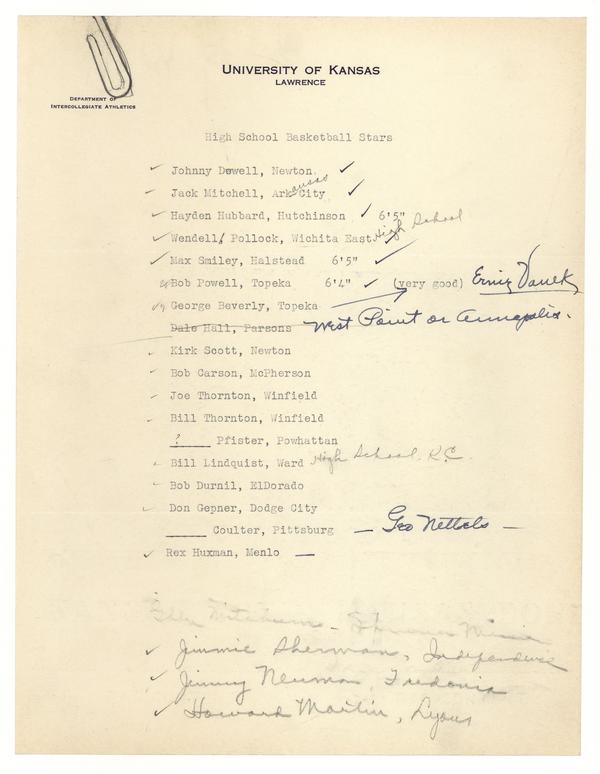 UNIVERSITY OF KANSAS
LAWRENCE
DEPARTMENT OF
INTERCOLLEGIATE ATHLETICS
High School Basketball Stars
✓ Johnny Dowell, Newton ✓
✓ Jack Mitchell, Arkansas City ✓
✓ Hayden Hubbard, Hutchinson ✓ 6'5"
✓ Wendell Pollock, Wichita East High School ✓
✓ Max Smiley, Halstead 6'5" ✓
Bob Powell, Topeka 6'4" ✓ (very good) Ernie
George Beverly, Topeka
Dale Hall, Parsons West Point or Annapolis.
✓ Kirk Scott, Newton
✓ Bob Carson, McPherson
✓ Joe Thornton, Winfield
✓ Bill Thornton, Winfield
? Pfister, Powhattan
✓ Bill Lindquist, Ward High School K.C.
✓ Bob Durnil, ElDorado
✓ Don Gepner, Dodge City
Coulter, Pittsburg — Geo Nettels —
✓ Rex Huxman, Menlo —
✓ Jimmie Sherman, Independence
✓ Jimmy Neuman, Fredonia
✓ Howard Martin, Lyons